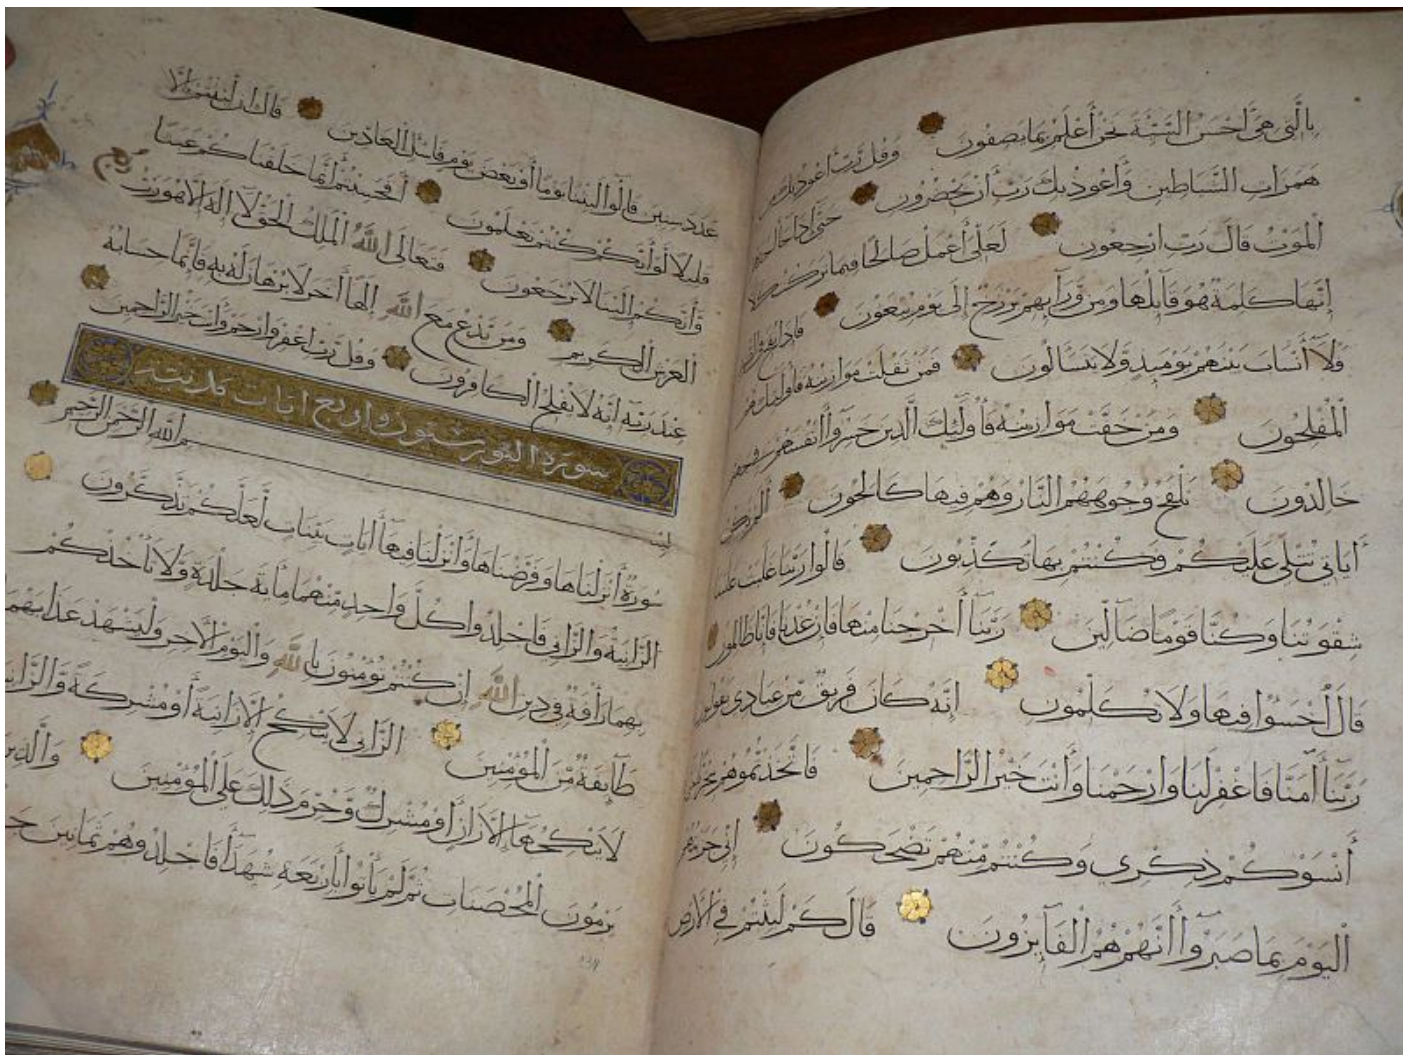 بِالَّتِي هِيَ أَحْسَنُ السَّيِّئَةَ نَحْنُ أَعْلَمُ بِمَا يَصِفُونَ وَقُل رَّبِّ أَعُوذُ بِكَ مِنْ
هَمَزَاتِ الشَّيَاطِينِ وَأَعُوذُ بِكَ رَبِّ أَنْ يَحْضُرُونِ حَتَّى إِذَا جَاءَ أَحَدَهُمُ
الْمَوْتُ قَالَ رَبِّ ارْجِعُونِ لَعَلِّي أَعْمَلُ صَالِحًا فِيمَا تَرَكْتُ كَلَّا
إِنَّهَا كَلِمَةٌ هُوَ قَائِلُهَا وَمِنْ وَرَائِهِمْ بَرْزَخٌ إِلَى يَوْمِ يُبْعَثُونَ فَإِذَا نُفِخَ فِي الصُّورِ
فَلَا أَنْسَابَ بَيْنَهُمْ يَوْمَئِذٍ وَلَا يَتَسَاءَلُونَ فَمَنْ ثَقُلَتْ مَوَازِينُهُ فَأُولَئِكَ هُمُ
الْمُفْلِحُونَ وَمَنْ خَفَّتْ مَوَازِينُهُ فَأُولَئِكَ الَّذِينَ خَسِرُوا أَنْفُسَهُمْ فِي جَهَنَّمَ
خَالِدُونَ تَلْفَحُ وُجُوهَهُمُ النَّارُ وَهُمْ فِيهَا كَالِحُونَ أَلَمْ تَكُنْ
أَيَاتِي تُتْلَى عَلَيْكُمْ فَكُنْتُمْ بِهَا تُكَذِّبُونَ قَالُوا رَبَّنَا غَلَبَتْ عَلَيْنَا
شِقْوَتُنَا وَكُنَّا قَوْمًا ضَالِّينَ رَبَّنَا أَخْرِجْنَا مِنْهَا فَإِنْ عُدْنَا فَإِنَّا ظَالِمُونَ
قَالَ اخْسَئُوا فِيهَا وَلَا تُكَلِّمُونِ إِنَّهُ كَانَ فَرِيقٌ مِنْ عِبَادِي يَقُولُونَ
رَبَّنَا أَمَنَّا فَاغْفِرْ لَنَا وَارْحَمْنَا وَأَنْتَ خَيْرُ الرَّاحِمِينَ فَاتَّخَذْتُمُوهُمْ سِخْرِيًّا حَتَّى
أَنْسَوْكُمْ ذِكْرِي وَكُنْتُمْ مِنْهُمْ تَضْحَكُونَ إِنِّي جَزَيْتُهُمُ
الْيَوْمَ بِمَا صَبَرُوا أَنَّهُمْ هُمُ الْفَائِزُونَ قَالَ كَمْ لَبِثْتُمْ فِي الْأَرْضِ
عَدَدَ سِنِينَ قَالُوا لَبِثْنَا يَوْمًا أَوْ بَعْضَ يَوْمٍ فَاسْئَلِ الْعَادِّينَ قَالَ إِنْ لَبِثْتُمْ إِلَّا
قَلِيلًا لَوْ أَنَّكُمْ كُنْتُمْ تَعْلَمُونَ أَفَحَسِبْتُمْ أَنَّمَا خَلَقْنَاكُمْ عَبَثًا
وَأَنَّكُمْ إِلَيْنَا لَا تُرْجَعُونَ فَتَعَالَى اللَّهُ الْمَلِكُ الْحَقُّ لَا إِلَهَ إِلَّا هُوَ رَبُّ
الْعَرْشِ الْكَرِيمِ وَمَنْ يَدْعُ مَعَ اللَّهِ إِلَهًا أَخَرَ لَا بُرْهَانَ لَهُ بِهِ فَإِنَّمَا حِسَابُهُ
عِنْدَ رَبِّهِ إِنَّهُ لَا يُفْلِحُ الْكَافِرُونَ وَقُلْ رَبِّ اغْفِرْ وَارْحَمْ وَأَنْتَ خَيْرُ الرَّاحِمِينَ
سورة النور ستون واربع ايات مدنية
بسم الله الرَّحْمَنِ الرَّحِيمِ
سُورَةٌ أَنْزَلْنَاهَا وَفَرَضْنَاهَا وَأَنْزَلْنَا فِيهَا أَيَاتٍ بَيِّنَاتٍ لَعَلَّكُمْ تَذَكَّرُونَ
الزَّانِيَةُ وَالزَّانِي فَاجْلِدُوا كُلَّ وَاحِدٍ مِنْهُمَا مِائَةَ جَلْدَةٍ وَلَا تَأْخُذْكُمْ
بِهِمَا رَأْفَةٌ فِي دِينِ اللَّهِ إِنْ كُنْتُمْ تُؤْمِنُونَ بِاللَّهِ وَالْيَوْمِ الْآخِرِ وَلْيَشْهَدْ عَذَابَهُمَا
طَائِفَةٌ مِنَ الْمُؤْمِنِينَ الزَّانِي لَا يَنْكِحُ إِلَّا زَانِيَةً أَوْ مُشْرِكَةً وَالزَّانِيَةُ
لَا يَنْكِحُهَا إِلَّا زَانٍ أَوْ مُشْرِكٌ وَحُرِّمَ ذَلِكَ عَلَى الْمُؤْمِنِينَ وَالَّذِينَ
يَرْمُونَ الْمُحْصَنَاتِ ثُمَّ لَمْ يَأْتُوا بِأَرْبَعَةِ شُهَدَاءَ فَاجْلِدُوهُمْ ثَمَانِينَ